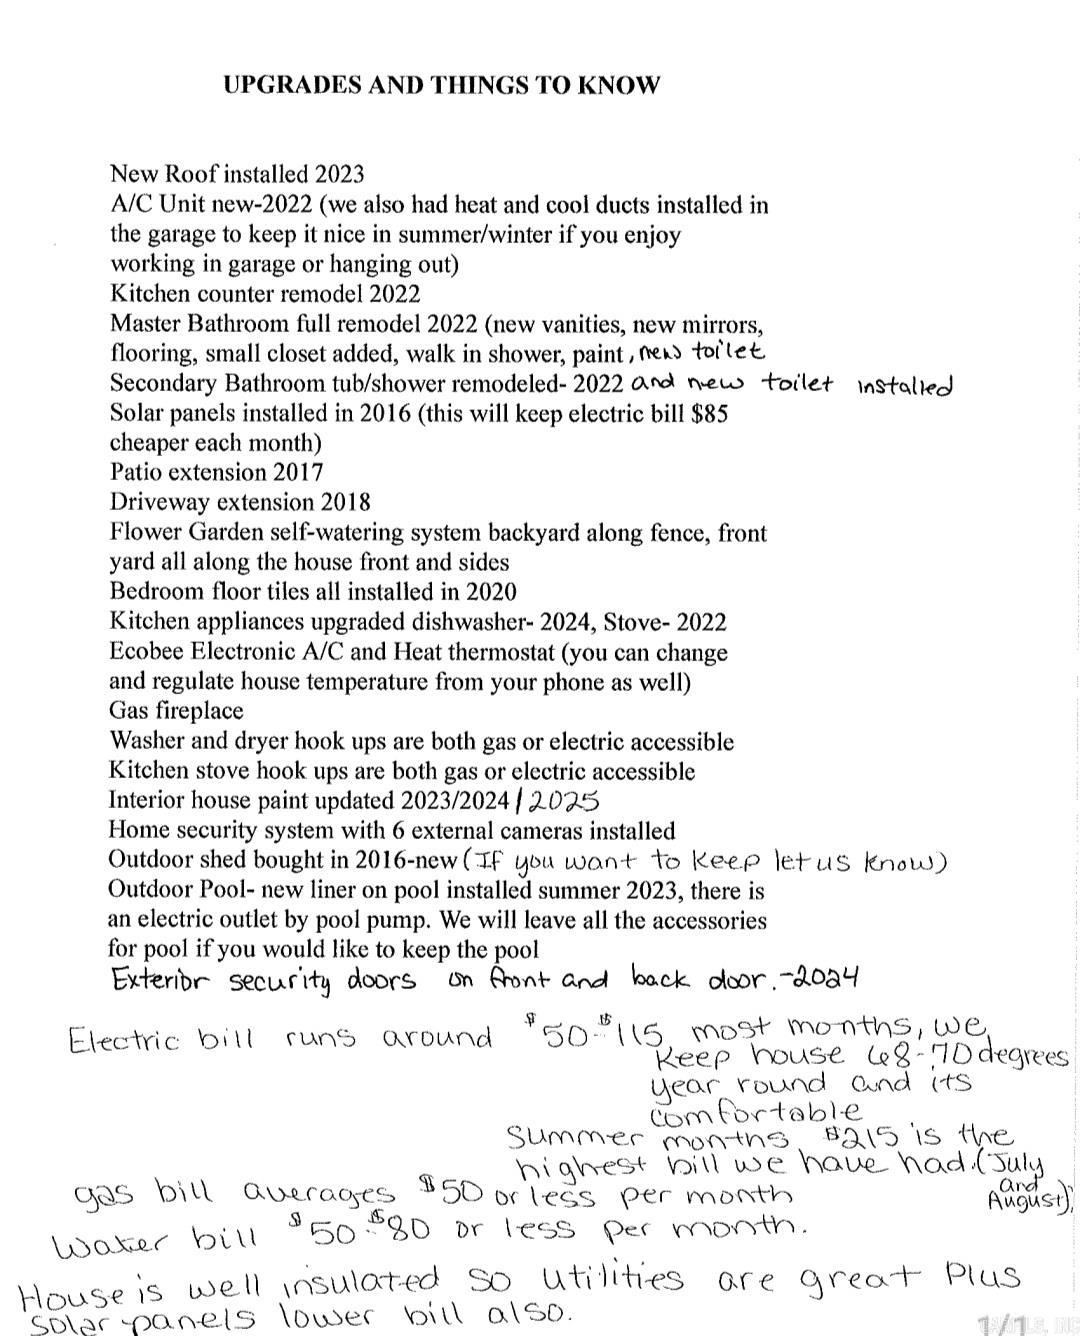 UPGRADES AND THINGS TO KNOW
New Roof installed 2023
A/C Unit new-2022 (we also had heat and cool ducts installed in
the garage to keep it nice in summer/winter if you enjoy
working in garage or hanging out)
Kitchen counter remodel 2022
Master Bathroom full remodel 2022 (new vanities, new mirrors,
flooring, small closet added, walk in shower, paint, new toilet
Secondary Bathroom tub/shower remodeled- 2022 and new toilet installed
Solar panels installed in 2016 (this will keep electric bill $85
cheaper each month)
Patio extension 2017
Driveway extension 2018
Flower Garden self-watering system backyard along fence, front
yard all along the house front and sides
Bedroom floor tiles all installed in 2020
Kitchen appliances upgraded dishwasher- 2024, Stove- 2022
Ecobee Electronic A/C and Heat thermostat (you can change
and regulate house temperature from your phone as well)
Gas fireplace
Washer and dryer hook ups are both gas or electric accessible
Kitchen stove hook ups are both gas or electric accessible
Interior house paint updated 2023/2024/2025
Home security system with 6 external cameras installed
Outdoor shed bought in 2016-new (If you want to keep let us know)
Outdoor Pool- new liner on pool installed summer 2023, there is
an electric outlet by pool pump. We will leave all the accessories
for pool if you would like to keep the pool
Exterior security doors on front and back door.-2024
Electric bill runs around $50-$115 most months, we
keep house 68-70 degrees
year round and its
comfortable
Summer months $215 is the
highest bill we have had. (July
and
August)
gas bill averages $50 or less per month
Water bill $50-$80 or less per month.
House is well insulated so utilities are great Plus
solar panels lower bill also.
1/1